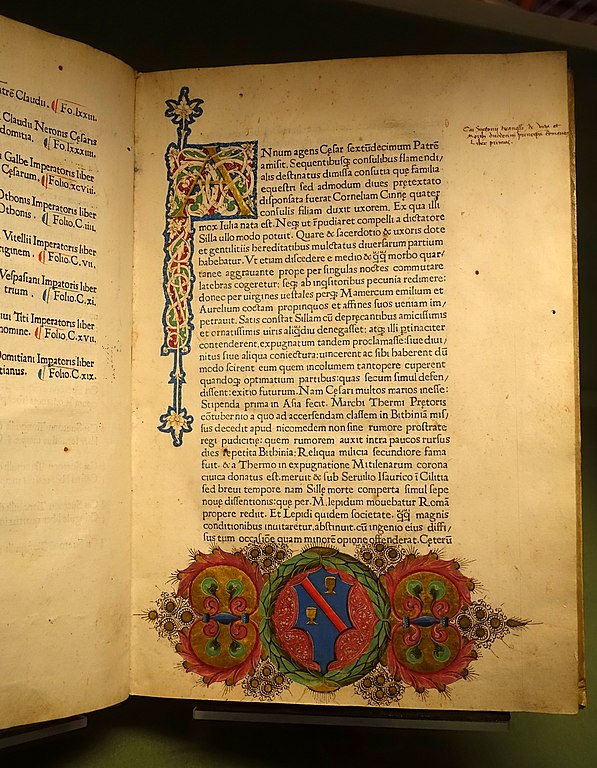 trē Claudii. Fo.lxxiii.
Claudii Neronis Cęsaris
domitia. Fo.lxxxiiii.
Galbe Imperatoris liber
Cęsarum. Folio.xcviii.
Othonis Imperatoris liber
Othonis. Folio.C.iiii.
Vitellii Imperatoris liber
riginem. Folio.C.vii.
Vespasiani Impatoris liber
trium. Folio.C.xi.
iui Titi Imperatoris liber
nomine. Folio.C.xvii.
Domitiani Impatoris liber
tianus. Folio.C.xix.
ANnum agens Cęsar sextūdecimum Patrē
amisit. Sequentibusq; consulibus flamendi/
alis destinatus dimissa consutia que familia
equestri sed admodum diues prętextato
disponsata fuerat Corneliam Cinnę quater
consulis filiam duxit uxorem. Ex qua illi
mox Iulia nata est. Neq; ut rępudiaret compelli a dictatore
Silla ullo modo potuit. Quare & sacerdotio & uxoris dote
et gentilitiis hereditatibus mulctatus diuersarum partium
habebatur. Vt etiam discedere e medio & q̄q̄ morbo quar/
tanee aggrauante prope per singulas noctes commutare
latebras cogeretur: seq; ab inqsitoribus pecunia redimere:
donec per uirgines uestales perq; Mamercum emilium et
Aurelium cottam propinquos et affines suos ueniam im/
petrauit. Satis constat Sillam cū deprecantibus amicissimis
et ornatissimis uiris aliq̄diu denegasset: atq; illi ptinaciter
contenderent, expugnatum tandem proclamasse: siue diui/
nitus siue aliqua coniectura: uincerent ac sibi haberent dū
modo scirent eum quem incolumem tantopere cuperent
quandoq; optimatium partibus: quas secum simul defen/
dissent: exitio futurum. Nam Cęsari multos marios inesse:
Stipenda prima in Asia fecit. Marchi Thermi Prętoris
cōtubernio a quo ad accersendam classem in Bithinia mis/
sus decedit apud nicomedem non sine rumore prostrate
regi pudicitię: quem rumorem auxit intra paucos rursus
dies repetita Bithinia: Reliqua milicia secundiore fama
fuit. & a Thermo in expugnatione Mitilenarum corona
ciuica donatus est. meruit & sub Seruilio Isaurico ī Cilitia
sed breui tempore nam Sillę morte comperta simul sepe
nouę dissentionis: que per. M. lepidum mouebatur Romā
propere rediit. Et Lepidi quidem societate. q̄q̄ magnis
conditionibus inuitaretur. abstinuit. cū ingenio eius diffi/
sus tum occasiōe quam minorē opione offenderat. Ceterū